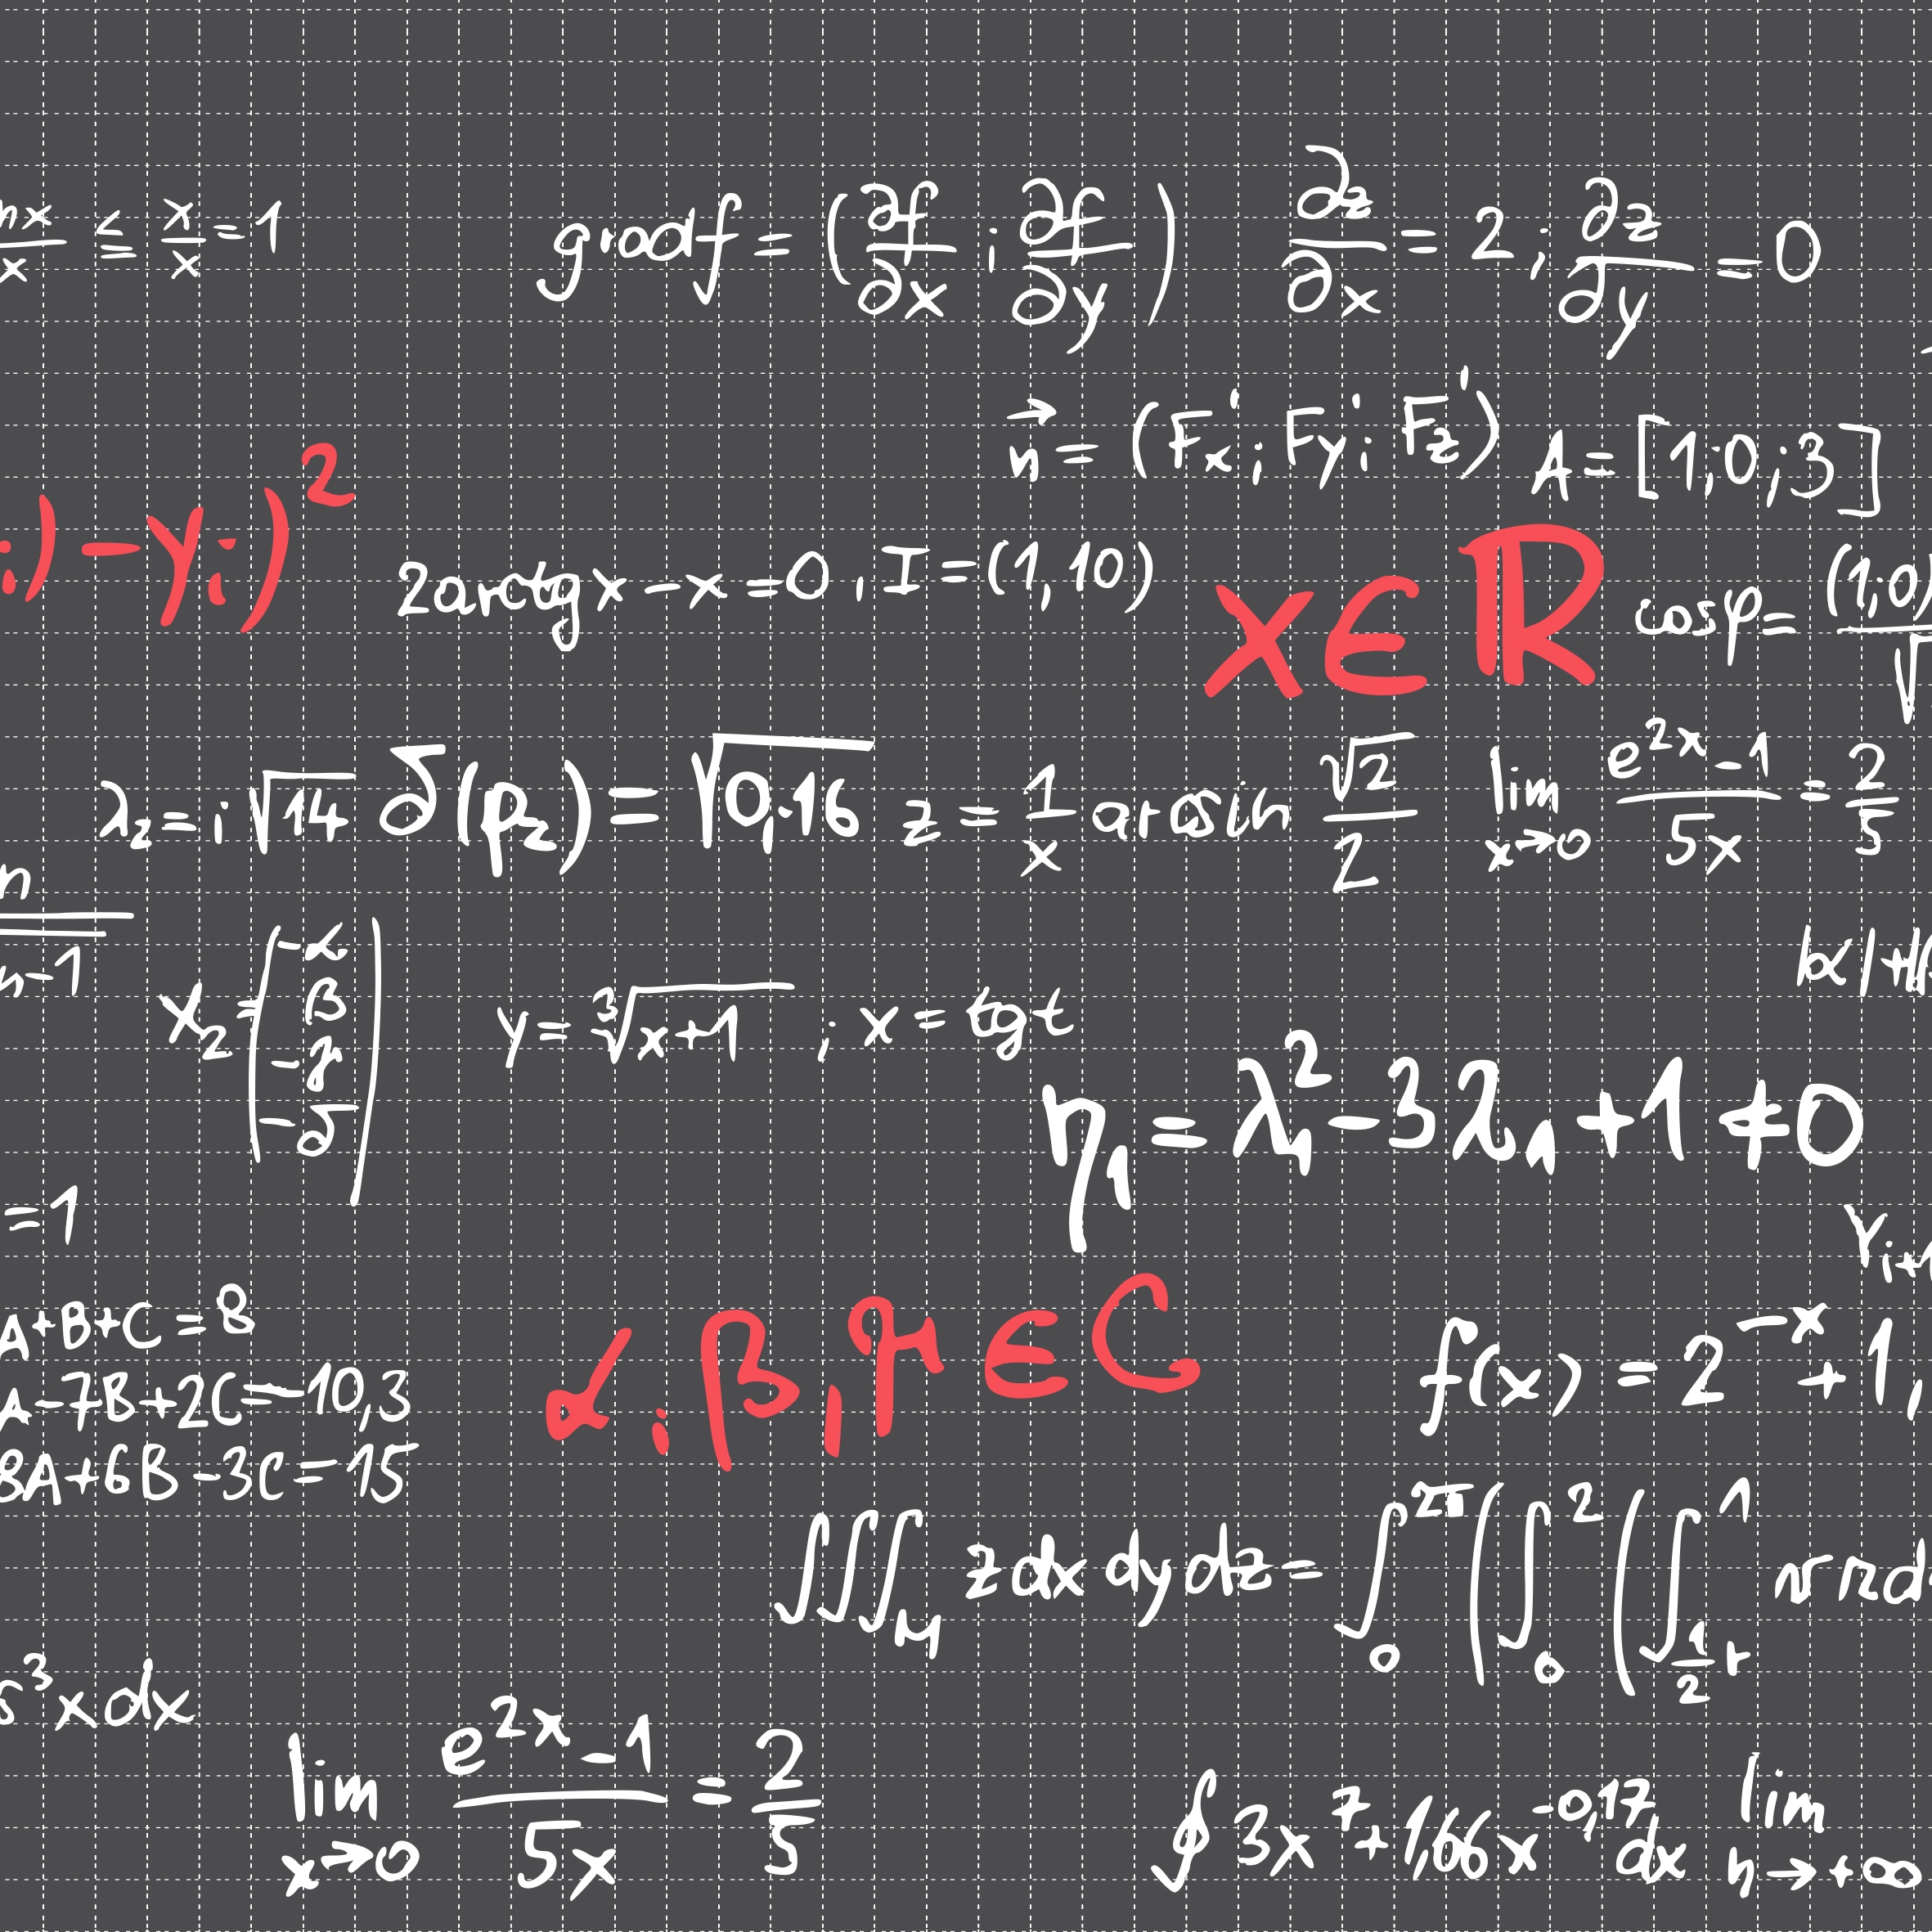 nx/x ≤ x/x = 1
grad f = (∂f/∂x ; ∂f/∂y)
∂z/∂x = 2 ; ∂z/∂y = 0
n⃗ = (Fx' ; Fy' ; Fz')
A = [1;0;3]
) - yi)²
2arctgx - x = 0 , I = (1, 10)
x ∈ ℝ
cosφ = (1;0)
λ₂ = i√14
δ(p₂) = √0.16
z = 1/x arcsin √2/2
lim x→0 (e^2x - 1)/5x = 2/5
n
n-1
x₂ = (-α β -γ -δ)
y = ³√x+1 ; x = tgt
η₁ = λ₁² - 3λ₁ + 1 ≠ 0
= 1
Yi+1
A+B+C = 8
A-7B+2C = 10,3
8A+6B-3C = 15
α; β, γ ∈ C
f(x) = 2^-x + 1,
∭M z dx dy dz = ∫₀^2π (∫₀² (∫½r¹
³x dx
lim x→0 (e^2x - 1)/5x = 2/5
∮ 3x⁷ + 1,66x^-0,17 dx
lim n→+∞